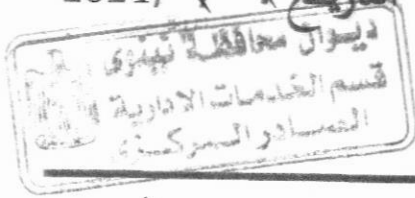 2024/
ديوان محافظة نينوى
قسم الخدمات الادارية
الصادر المركزي